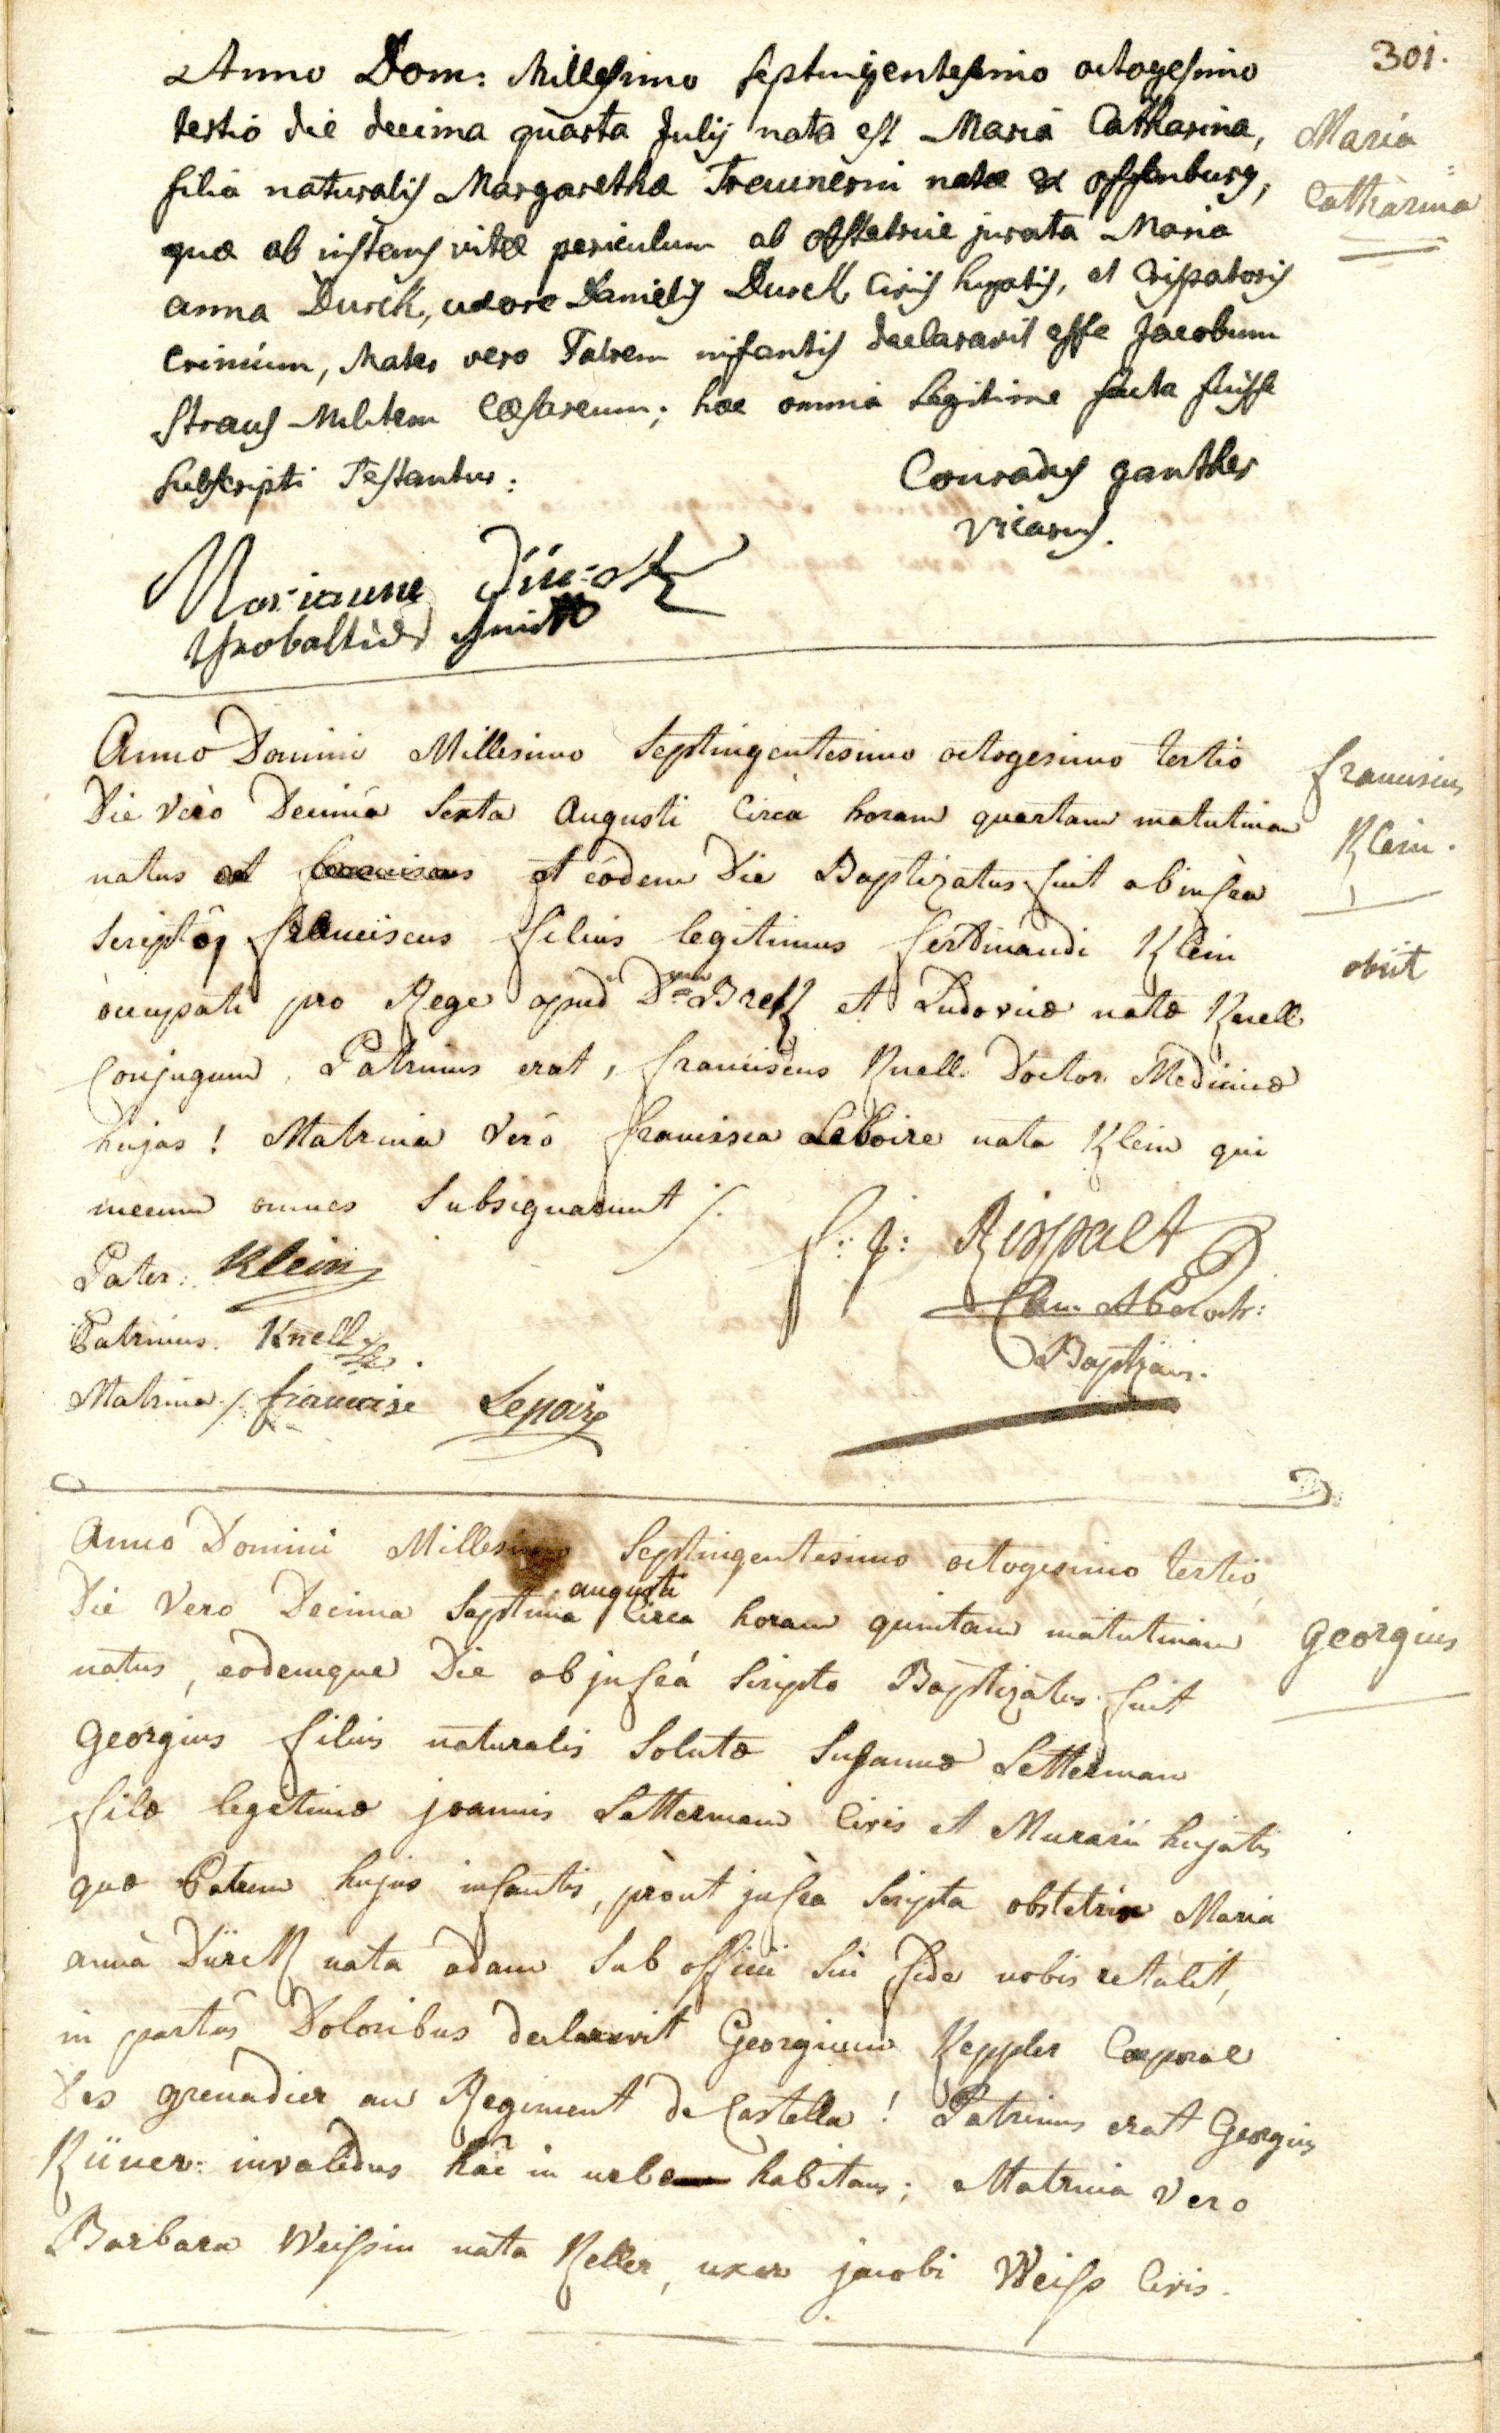 301.
Anno Dom: Millesimo septuigentesimo octogesimo
tertio die decima quarta Julij nata est Maria Catharina,
Maria
Catharina
filia naturalis Margarethæ Traunerin natæ ex offenburg,
quæ ob instans vitæ periculum ab obstetrice jurata Maria
anna Durck, uxore Danielis Durck Civis hujatis, et Crispatoris
crinium, Mater vero Patrem infantis declaravit esse Jacobum
Straus Militem Cæsareum; hæc omnia legitime facta fuisse
subscripti Testantur:
Conradus ganther
vicarius.
Marianne Dürck
Anno Domini Millesimo Septingentesimo octogesimo tertio
Die Vero Decima Sexta Augusti Circa horam quartam matutinam
franciscus
Klein.
natus est franciscus et eodem Die Baptizatus fuit ab infra
Scripto, franciscus filius legitimus ferdinandi Klein
obiit
occupati pro Rege apud Dnum Breck et Ludovicæ natæ Knell
Conjugum, Patrinus erat, franciscus Knell Doctor Medicinæ
hujas! Matrina Vero francisca LeBoire nata Klein qui
mecum omnes Subsignarunt /.
Pater: Klein
F: J: Rispalt
Patrinus. Knell
Baptizans.
Matrina /: francoise Lenoir
Anno Domini Millesimo Septingentesimo octogesimo tertio
Die Vero Decima Septima augusti Circa horam quintam matutinam
georgius
natus, eodemque Die ab infra Scripto Baptizatus fuit
georgius filius naturalis Solutæ Susannæ Letterman
filæ legetimæ joannis Letterman Civis et Murarii hujatis
quæ Patrem hujus infantis, prout infra Scripta obstetrix Maria
anna Dürck nata adam Sub officii Sui fide nobis retulit,
in partus Doloribus declaravit Georgium Keppler Caporal
Des grenadier au Regiment de Castella! Patrinus erat Georgius
Küner: invalidus hac in urbe habitans; Matrina Vero
Barbara Weissin nata Keller, uxor jacobi Weiss Civis.